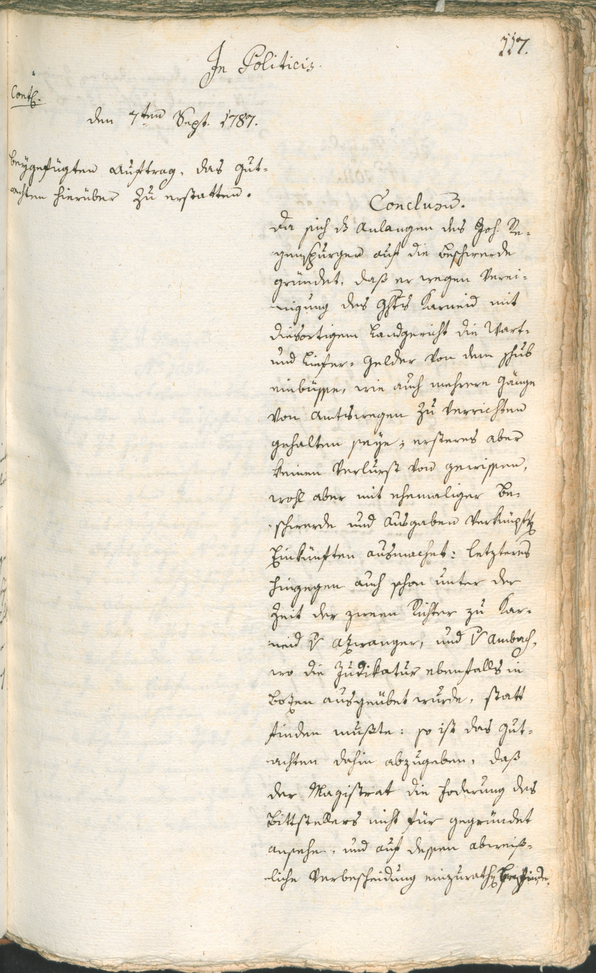 117.
In Politicis.
Contl.
den 7ten Sept. 1787.
beÿgefügten Auftrag, das Gut-
achten hierüber zu erstatten.
Conclusum.
Da sich ds Anlangen des Joh. Re-
genspurger auf die Beschwerde
gründet, daß er wegen Verei-
nigung des Ghts Karneid mit
diesortigem Landgericht die Wart-
und Liefer-Gelder von dem Schub
einbüsse, wie auch mehrere Gänge
von Amtswegen zu verrichten
gehalten seÿe; ersteres aber
keinen Verlurst von gewissen,
wohl aber mit ehemaliger Be-
schwerde und Ausgaben verknüpft
Einkünften ausmachet: letzteres
hingegen auch schon unter der
Zeit der zween Richter zu Kar-
neid v Atzwanger, und v Ambach,
wo die Judikatur ebenfalls in
Bozen ausgeübet wurde, statt
finden mußte: so ist das Gut-
achten dahin abzugeben, daß
der Magistrat die Foderung des
Bittstellers nicht für gegründet
ansehe, und auf dessen abweiß-
liche Verbescheidung einzurathen